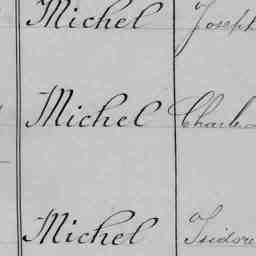 Michel Joseph
Michel Charles
Michel Isidore